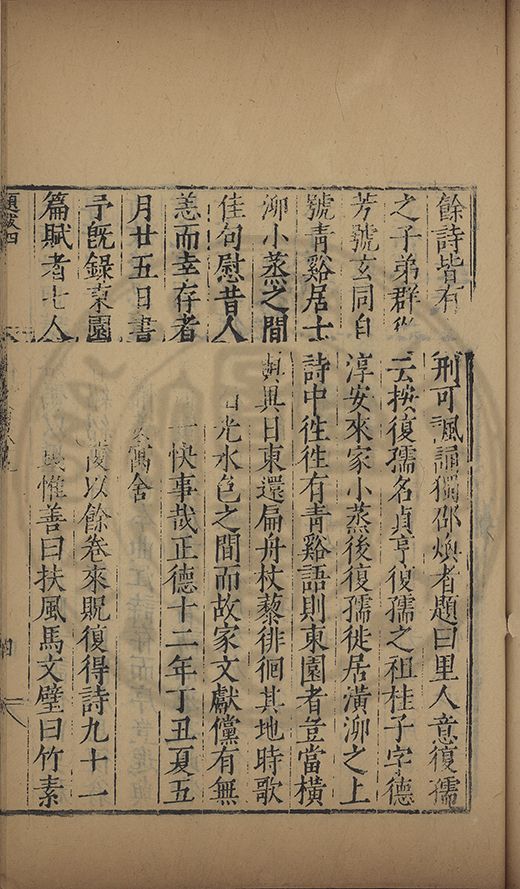 餘詩皆有刑可諷誦獨邵煥者題曰里人意復孺
之子弟群從云按復孺名貞亨復孺之祖桂子字德
芳號玄同自淳安來家小蒸後復孺徙居潢泖之上
號青谿居士詩中徃徃有青谿語則東園者豈當橫
泖小蒸之間與異日東還扁舟杖藜徘徊其地時歌
佳句慰昔人光水色之間而故家文獻儻有無
恙而幸存者一快事哉正德十二年丁丑夏五
月廿五日書寓舍
予旣錄東園復以餘卷來貺復得詩九十一
篇賦者七人惟善曰扶風馬文璧曰竹素
題跋四
四